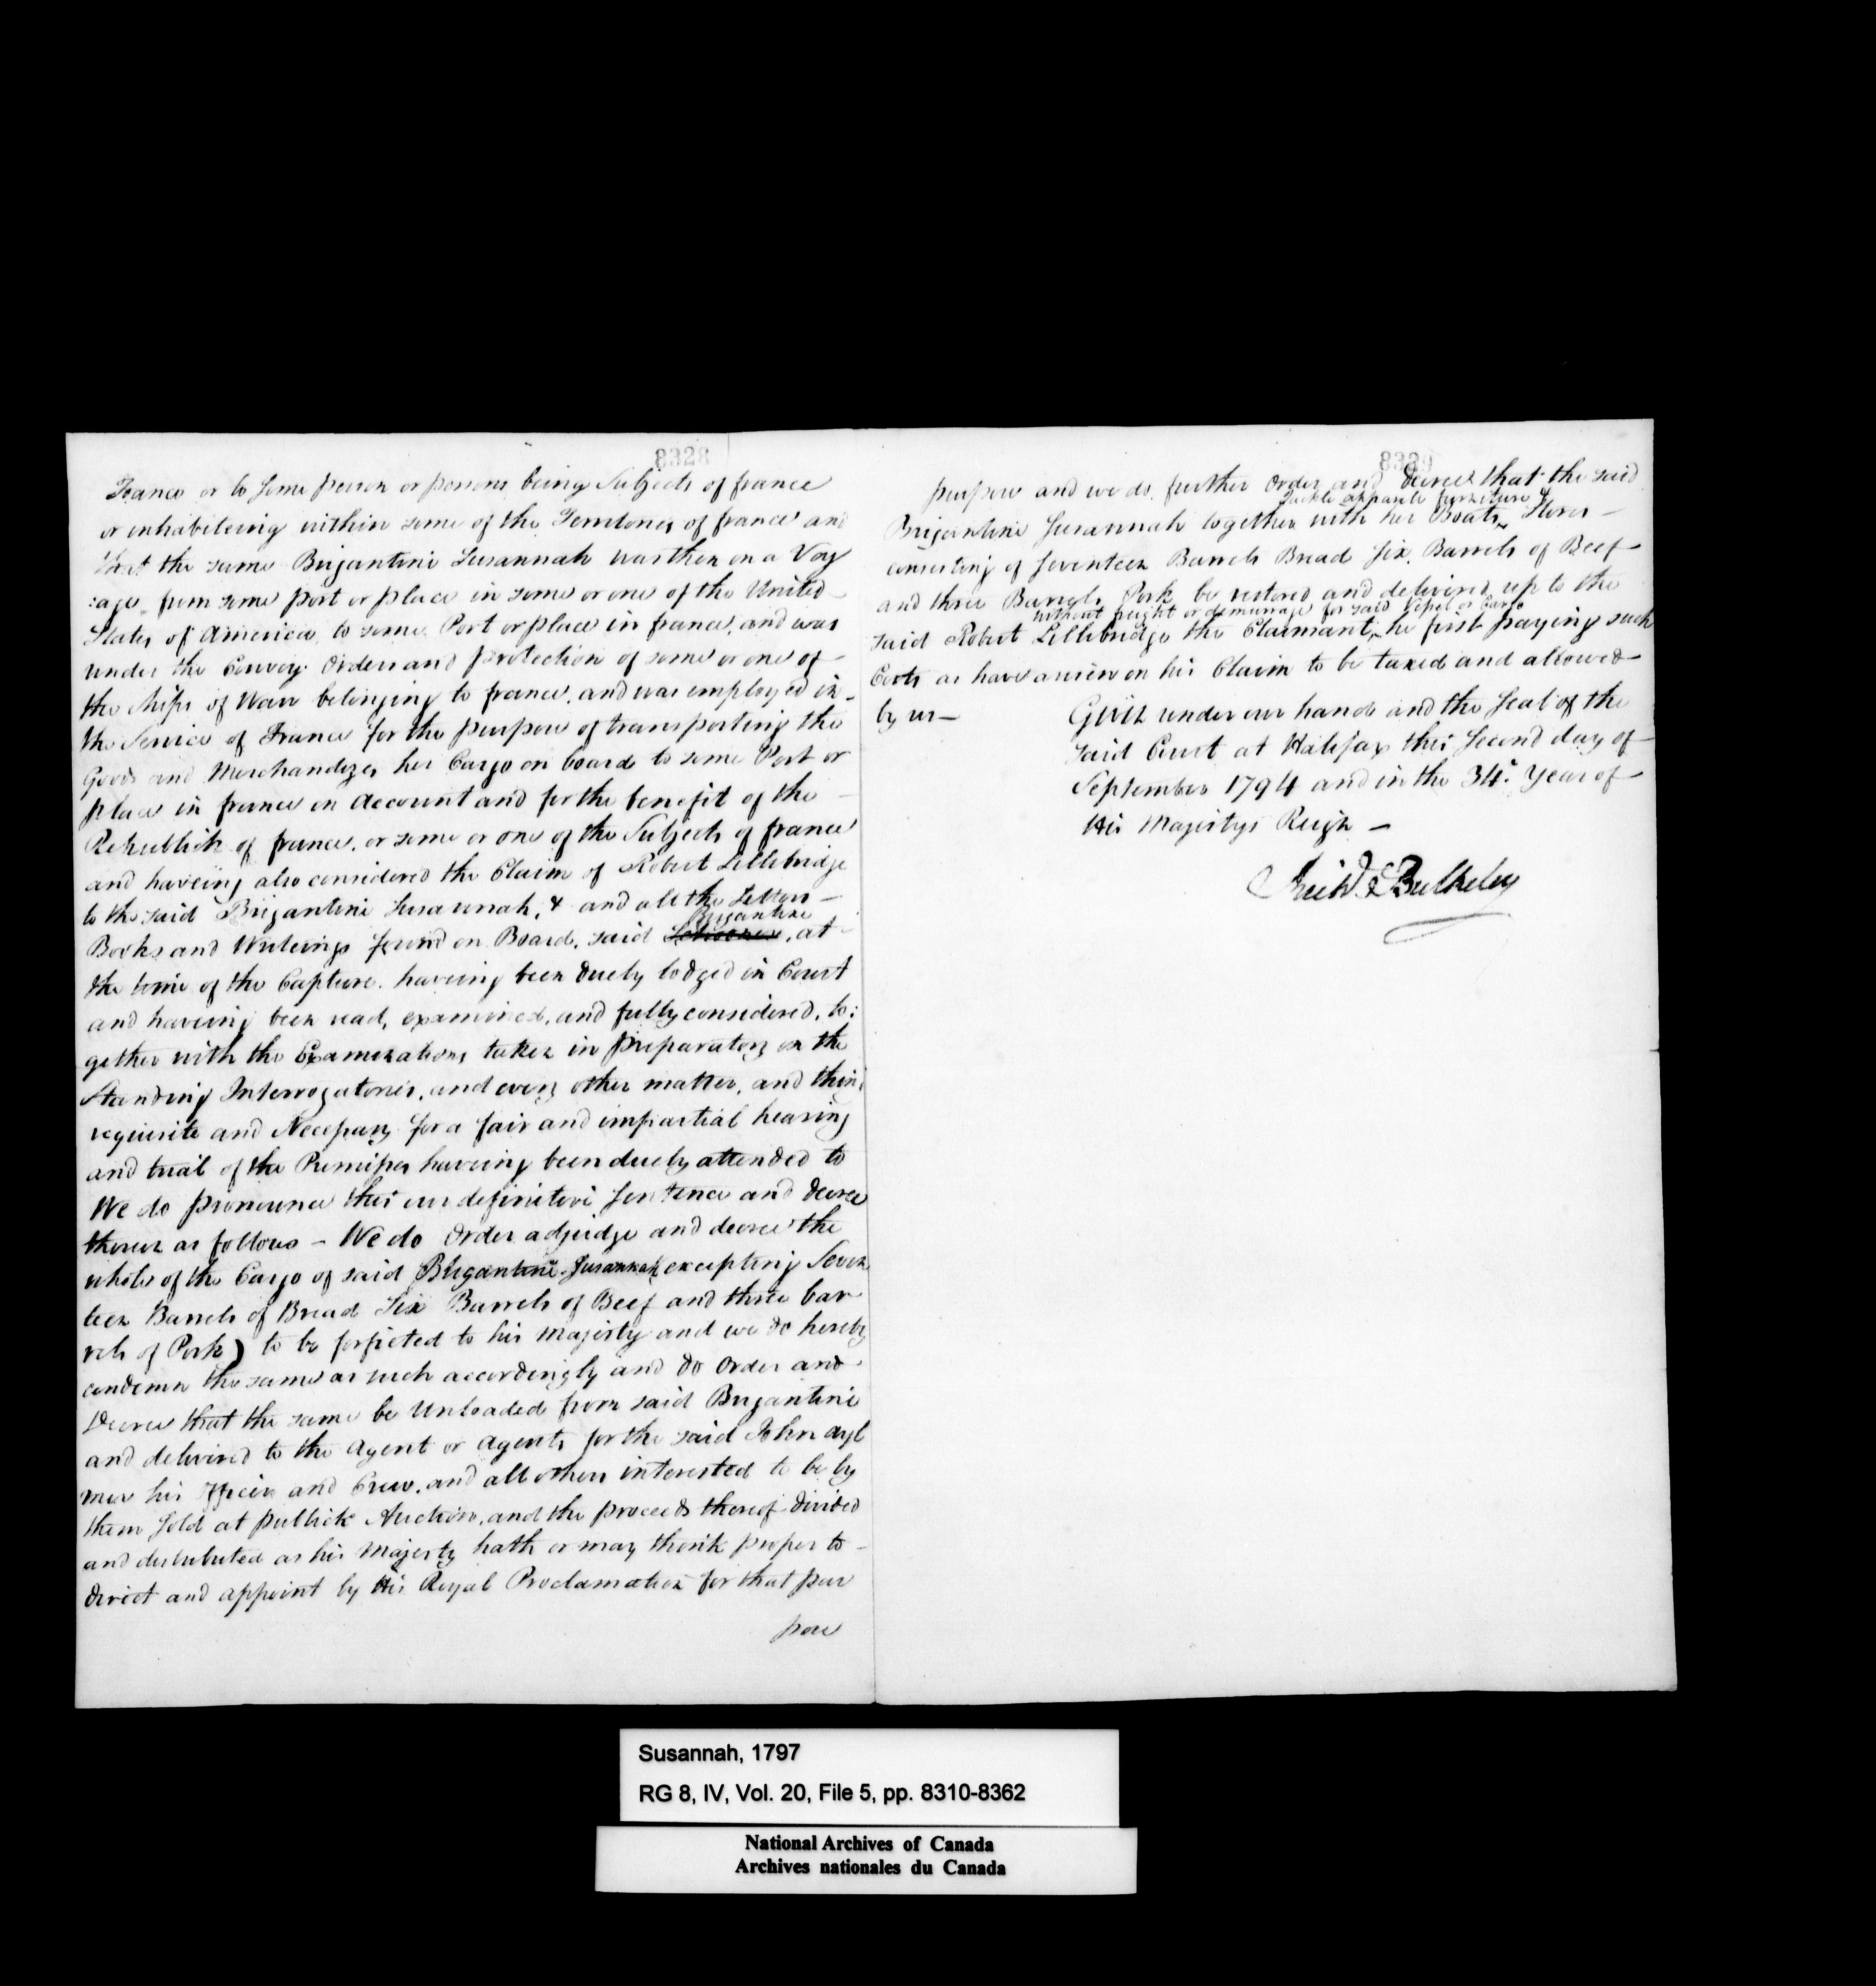 8328
France or to some person or persons being Subjects of france
or inhabiteing within some of the Territories of france and
that the same Brigantine Susannah was then on a Voy
:age from some port or place in some or one of the United
States of America to some Port or place in france, and was
under the Convoy Orders and protection of some or one of
the Ships of Warr belonging to france, and was employed in
the Service of France for the purpose of transporting the
Goods and Merchandizes her Cargo on board to some Port or
place in france on Account and for the benefit of the
Republick of france, or some or one of the Subjects of france
and haveing also considered the Claim of Robert Lillibridge
to the said Brigantine Susannah, & and all the Letters
Brigantine
Books and Writeings found on Board, said Schooner, at
the time of the Capture haveing been duely lodged in Court
and haveing been read, examined, and fully considered, to:
gether with the Examinations taken in Preparatory on the
Standing Interrogatories, and every other matter, and thing
requisite and Necessary for a fair and impartial hearing
and trial of the Premises haveing been duely attended to
We do pronounce this our definitive Sentence and decree
therein as follows – We do Order adjudge and decree the
whole of the Cargo of said Brigantine Susannah excepting Seven
teen Barrels of Bread Six Barrels of Beef and three bar
rels of Pork) to be forfieted to his Majesty and we do hereby
condemn the same as such accordingly and do Order and
Decree that the same be Unloaded from said Brigantine
and delivered to the Agent or Agents for the said John Ayl
mer his Officers and Crew, and all others interested to be by
them Sold at publick Auction, and the proceeds thereof divided
and distributed as his Majesty hath or may think proper to
direct and appoint by His Royal Proclamation for that pur
pose
purpose and we do further Order and decree that the said
Tackle apparele furniture &
Brigantine Susannah together with her Boats Stores
consisting of Seventeen Barrels Bread Six Barrels of Beef
and three Barrels Pork be restored and delivered up to the
without freight or demurrage for said Vessel or Cargo
said Robert Lillibridge the Claimant, he first paying such
Costs as have arisen on his Claim to be taxed and allowed
by us –
Given under our hand and the Seal of the
said Court at Halifax this Second day of
September 1794 and in the 34. Year of
His Majestys Reign –
Richd. Bulkeley
Susannah, 1797
RG 8, IV, Vol. 20, File 5, pp. 8310-8362
National Archives of Canada
Archives nationales du Canada